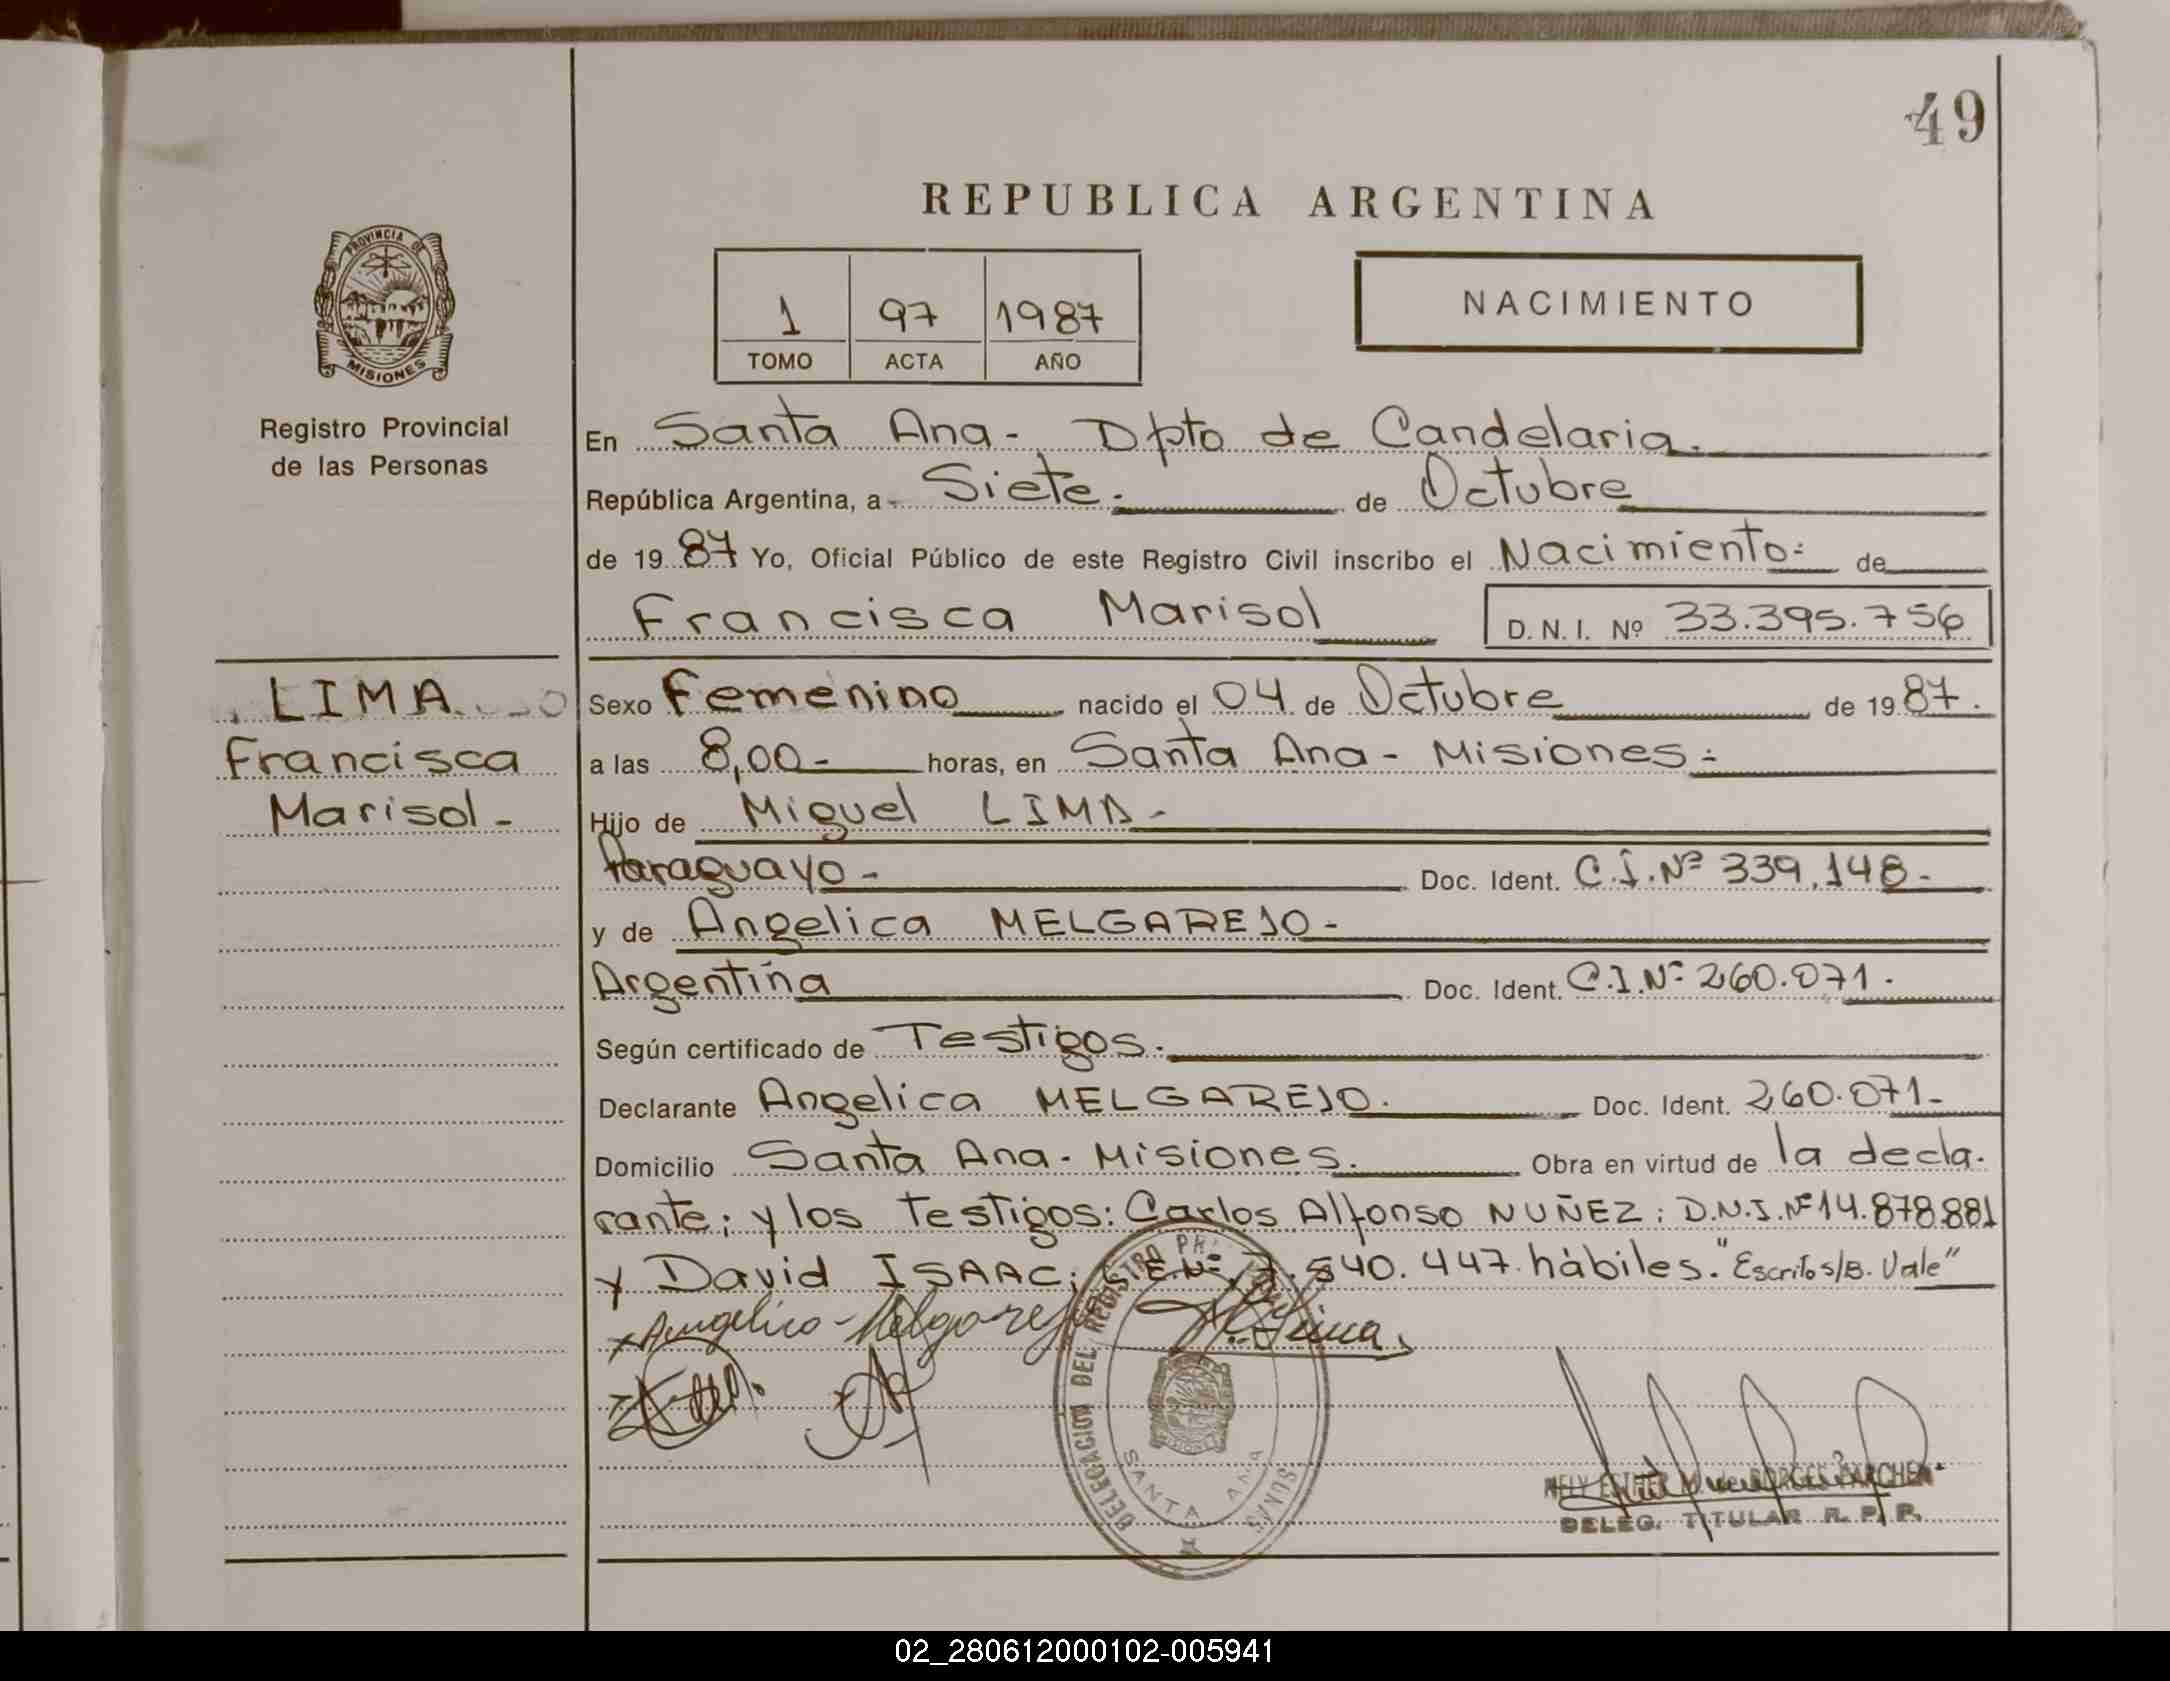 49
REPUBLICA ARGENTINA
PROVINCIA DE
MISIONES
1 97 1987
TOMO ACTA AÑO
NACIMIENTO
Registro Provincial
de las Personas
En Santa Ana- Dpto de Candelaria.
República Argentina, a Siete. de Octubre
de 1987 Yo, Oficial Público de este Registro Civil inscribo el Nacimiento= de
Francisca Marisol D. N. I. Nº 33.395.756
LIMA
Francisca
Marisol-
Sexo Femenino nacido el 04 de Octubre de 1987.
a las 8,00- horas, en Santa Ana - Misiones=
Hijo de Miguel LIMA-
Paraguayo- Doc. Ident. C.I.Nº 339.148-
y de Angelica MELGAREJO-
Argentina Doc. Ident. C.I.Nº 260.071.
Según certificado de Testigos.
Declarante Angelica MELGAREJO. Doc. Ident. 260.071-
Domicilio Santa Ana-Misiones. Obra en virtud de la decla.
rante; y los Testigos: Carlos Alfonso NUÑEZ: D.N.I.Nº14.878.881
y David ISAAC; .540.447. hábiles. "Escritos/B. Vale"
Angelica Melgarejo
Lima
DELEGACION DEL REGISTRO
SANTA ANA
NELY ESTHER M. de BORGES
DELEG. TITULAR R. P. P.
02_280612000102-005941